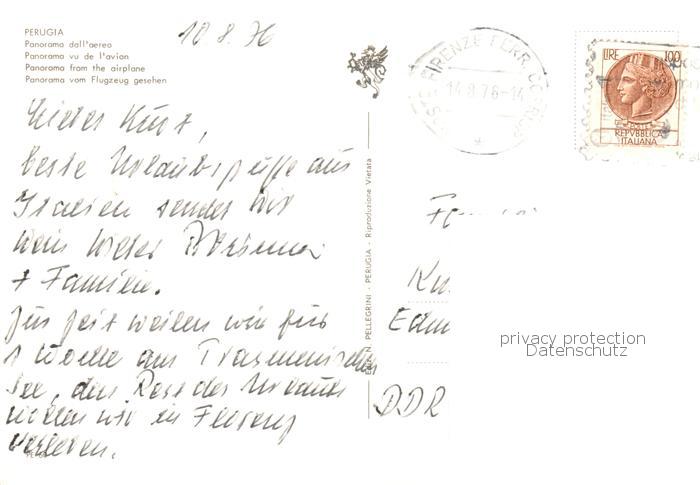 PERUGIA
Panorama dall'aereo
Panorama vu de l'avion
Panorama from the airplane
Panorama vom Flugzeug gesehen
10.8.76
Lieber Kurt,
beste Urlaubsgrüße aus
Italien sendet Dir
Dein lieber
+ Familie.
Zur Zeit weilen wir für
1 Woche am Trasmenischen
See, den Rest des Urlaubs
wollen wir in Florenz
verleben.
EDIT. N. PELLEGRINI - PERUGIA - Riproduzione Vietata
POSTE FIRENZE FERR. CORRISP.
14.8.76-14
LIRE 100
POSTE
REPVBBLICA
ITALIANA
Fa
Ku
Edm
DDR
privacy protection
Datenschutz